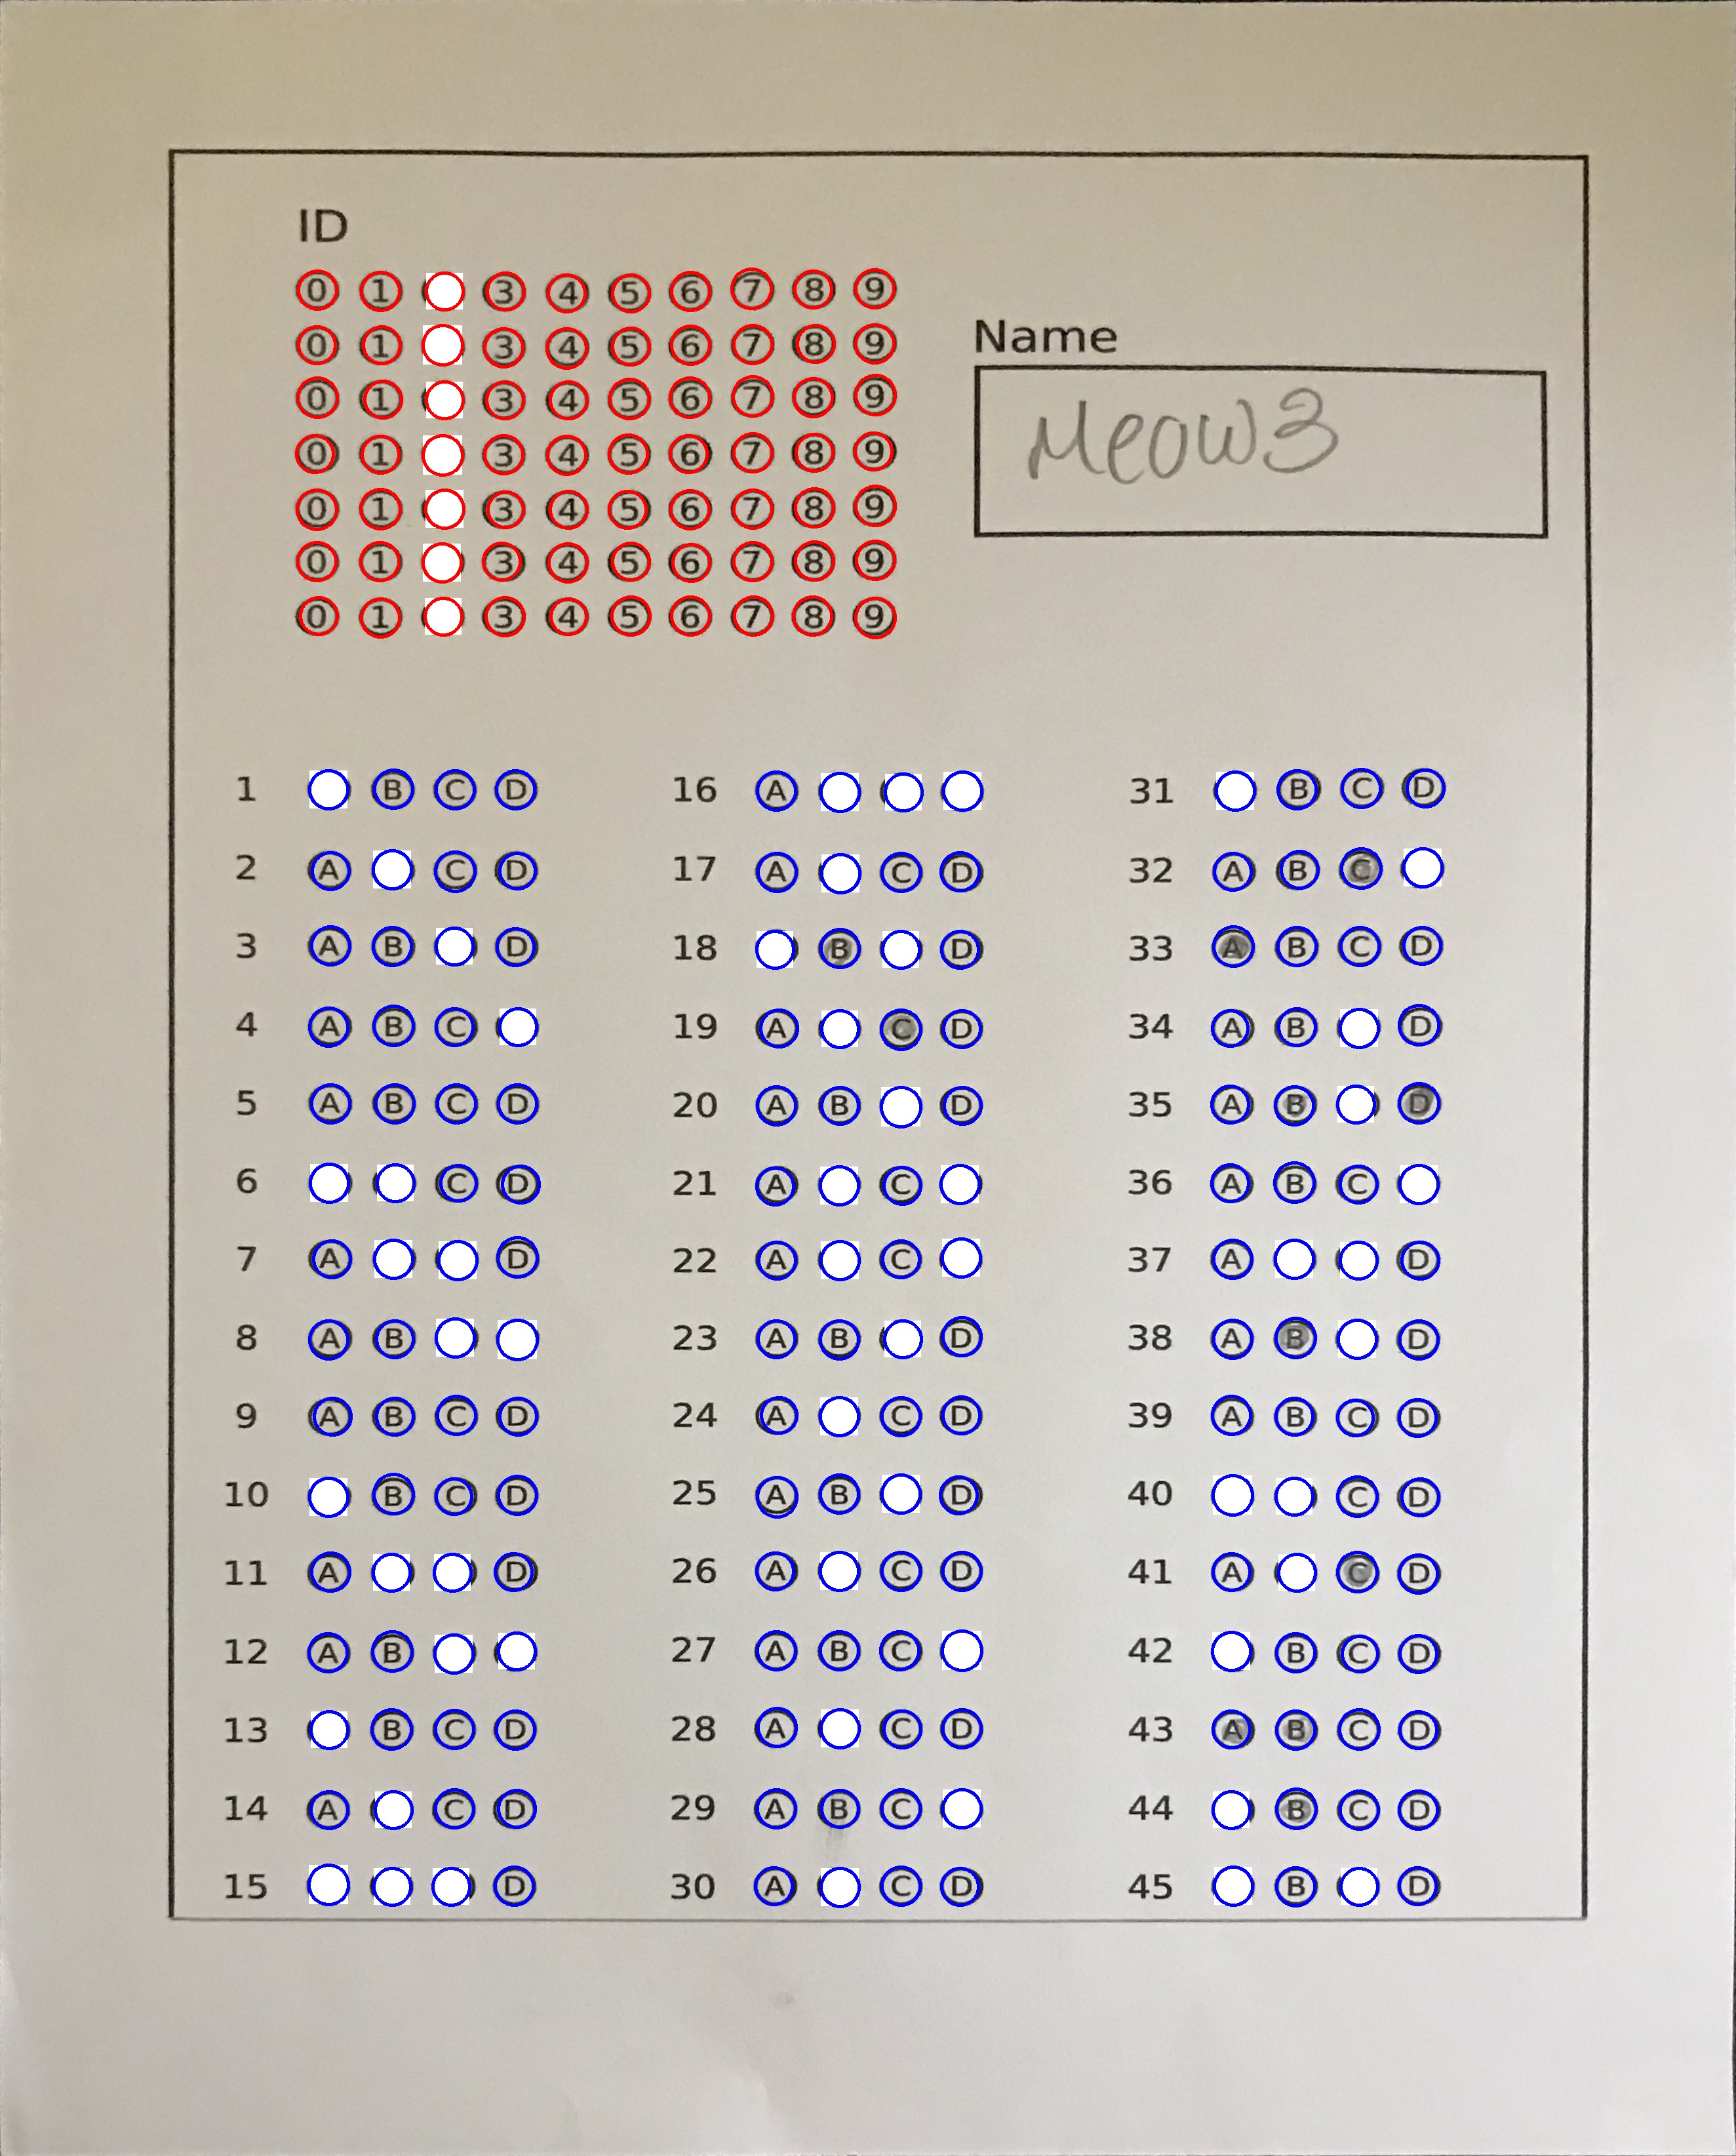 ID
0 1 3 4 5 6 7 8 9
0 1 3 4 5 6 7 8 9
0 1 3 4 5 6 7 8 9
0 1 3 4 5 6 7 8 9
0 1 3 4 5 6 7 8 9
0 1 3 4 5 6 7 8 9
0 1 3 4 5 6 7 8 9
Name
Meow3
1 B C D
2 A C D
3 A B D
4 A B C
5 A B C D
6 C D
7 A D
8 A B
9 A B C D
10 B C D
11 A D
12 A B
13 B C D
14 A C D
15 D
16 A
17 A C D
18 B D
19 A C D
20 A B D
21 A C
22 A C
23 A B D
24 A C D
25 A B D
26 A C D
27 A B C
28 A C D
29 A B C
30 A C D
31 B C D
32 A B C
33 A B C D
34 A B D
35 A B D
36 A B C
37 A D
38 A B D
39 A B C D
40 C D
41 A C D
42 B C D
43 A B C D
44 B C D
45 B D